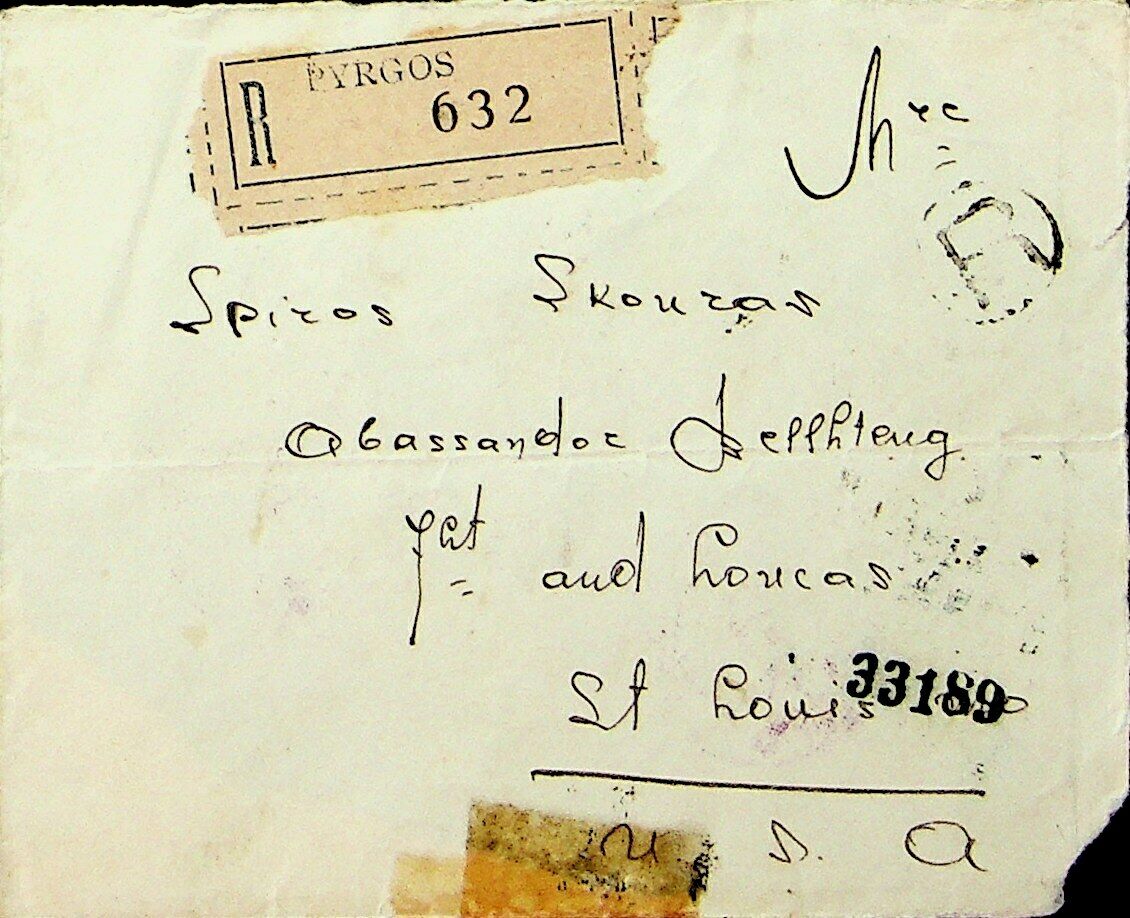 R PYRGOS
632
Mrc
R
Spiros Skouras
Abassandor
7st and Loucas
33189
St Louis
U. S. A